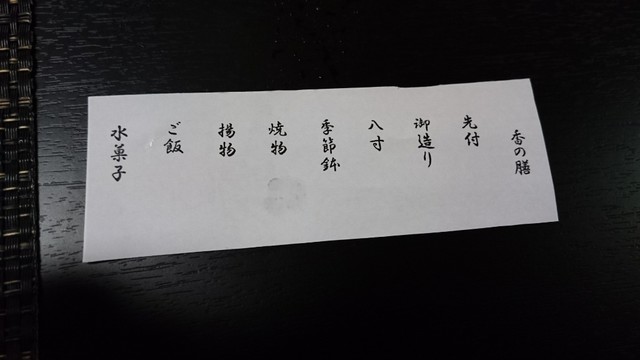 香の膳
先付
御造り
八寸
季節鉢
焼物
揚物
ご飯
水菓子